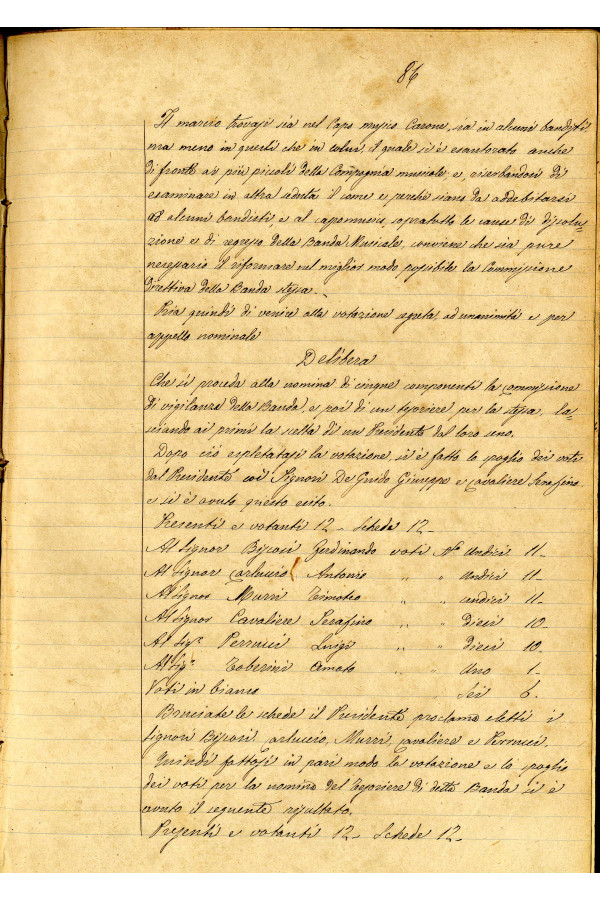 86
Il marcio trovasi sia nel Capo musico Carone, sia in alcuni bandisti
ma meno in questi che in colui, il quale si è esautorato anche
di fronte ai più piccoli della Compagnia musicale: e, riserbandosi di
esaminare in altra seduta il come e perchè siano da addebitarsi
ad alcuni bandisti, e al capomusico, sopratutto le cause di dissolu-
zione e di regresso della Banda Musicale, conviene che sia pure
necessario il riformare nel miglior modo possibile la Commissione
direttiva della Banda stessa.
Pria quindi di venire alla votazione segreta, ad unanimità e per
appello nominale
Delibera
Che si proceda alla nomina di cinque componenti la commissione
di vigilanza della Banda, e poi di un tesoriere per la stessa, la-
sciando ai primi la scelta di un Presidente dal loro seno.
Dopo ciò espletatasi la votazione, si è fatto lo spoglio dei voti
dal Presidente coi Signori De Guido Giuseppe e Cavaliere Serafino
e si è avuto questo esito.
Presenti e votanti 12_ Schede 12_
Al Signor Bissosi Ferdinando voti N° Undici 11_
Al Signor Carluccio Antonio " " Undici 11_
Al Signor Murri Timoteo " " undici 11_
Al Signor Cavaliere Serafino " " dieci 10_
Al Sig.r Perrucci Luigi " " dieci 10_
Al Sig.r Toberini Amato " " Uno 1_
Voti in bianco " Sei 6.
Bruciate le schede il Presidente proclama eletti i
signori Bissosi, Carluccio, Murri, Cavaliere e Perrucci.
Quindi fattosi in pari modo la votazione e lo spoglio
dei voti per la nomina del Tesoriere di detta Banda si è
avuto il seguente risultato.
Presenti e votanti 12_ Schede 12_